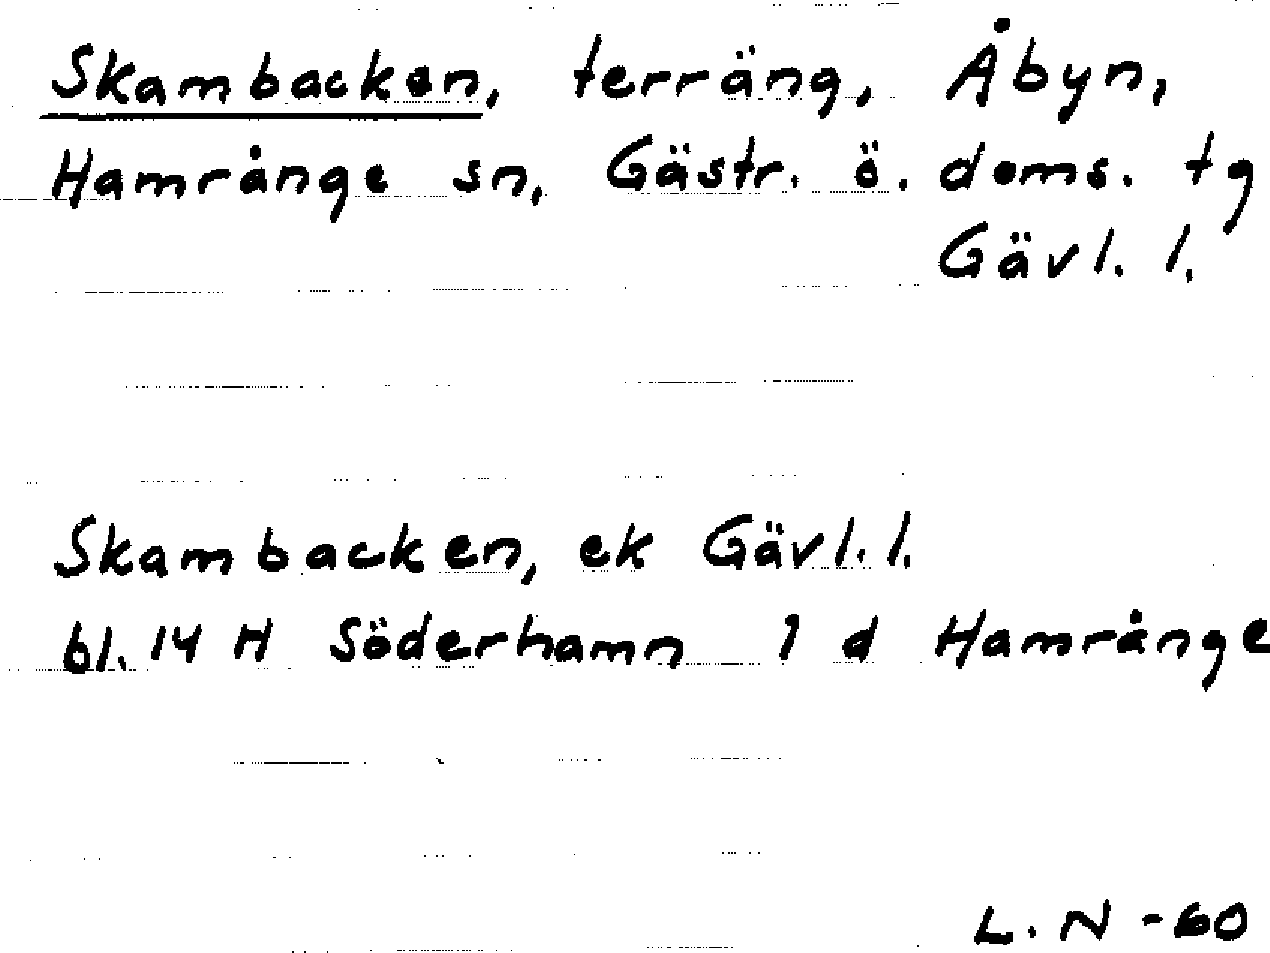 Skambacken, terräng, Åbyn,
Hamrånge sn, Gästr. ö. doms. tg
Gävl. l.
Skambacken, ek Gävl. l.
bl. 14 H Söderhamn 1 d Hamrånge
L. N -60